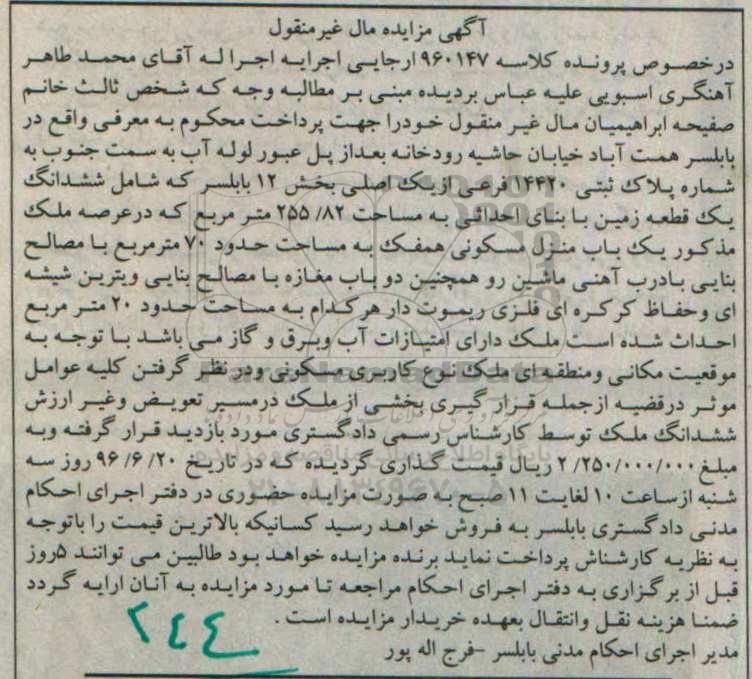 آگهی مزایده مال غیرمنقول
درخصوص پرونده کلاسه ۹۶۰۱۴۷ ارجایی اجرایه اجرا له آقای محمد طاهر
آهنگری اسبویی علیه عباس بردیده مبنی بر مطالبه وجه که شخص ثالث خانم
صفیحه ابراهیمیان مال غیر منقول خودرا جهت پرداخت محکوم به معرفی واقع در
بابلسر همت آباد خیابان حاشیه رودخانه بعداز پل عبور لوله آب به سمت جنوب به
شماره پلاک ثبتی ۱۴۴۲۰ فرعی ازیک اصلی بخش ۱۲ بابلسر که شامل ششدانگ
یک قطعه زمین با بنای احداثی به مساحت ۲۵۵/۸۲ متر مربع که درعرصه ملک
مذکور یک باب منزل مسکونی همفک به مساحت حدود ۷۰ مترمربع با مصالح
بنایی بادرب آهنی ماشین رو همچنین دو باب مغازه با مصالح بنایی ویترین شیشه
ای وحفاظ کرکره ای فلزی ریموت دار هرکدام به مساحت حدود ۲۰ متر مربع
احداث شده است ملک دارای امتیازات آب وبرق و گاز می باشد با توجه به
موقعیت مکانی ومنطقه ای ملک نوع کاربری مسکونی ودر نظر گرفتن کلیه عوامل
موثر درقضیه ازجمله قرار گیری بخشی از ملک درمسیر تعویض وغیر ارزش
ششدانگ ملک توسط کارشناس رسمی دادگستری مورد بازدید قرار گرفته وبه
مبلغ ۲/۲۵۰/۰۰۰/۰۰۰ ریال قیمت گذاری گردیده که در تاریخ ۹۶/۶/۲۰ روز سه
شنبه ازساعت ۱۰ لغایت ۱۱ صبح به صورت مزایده حضوری در دفتر اجرای احکام
مدنی دادگستری بابلسر به فروش خواهد رسید کسانیکه بالاترین قیمت را باتوجه
به نظریه کارشناش پرداخت نماید برنده مزایده خواهد بود طالبین می توانند ۵روز
قبل از برگزاری به دفتر اجرای احکام مراجعه تا مورد مزایده به آنان ارایه گردد
ضمنا هزینه نقل وانتقال بعهده خریدار مزایده است .
مدیر اجرای احکام مدنی بابلسر -فرج اله پور
۲۴۴